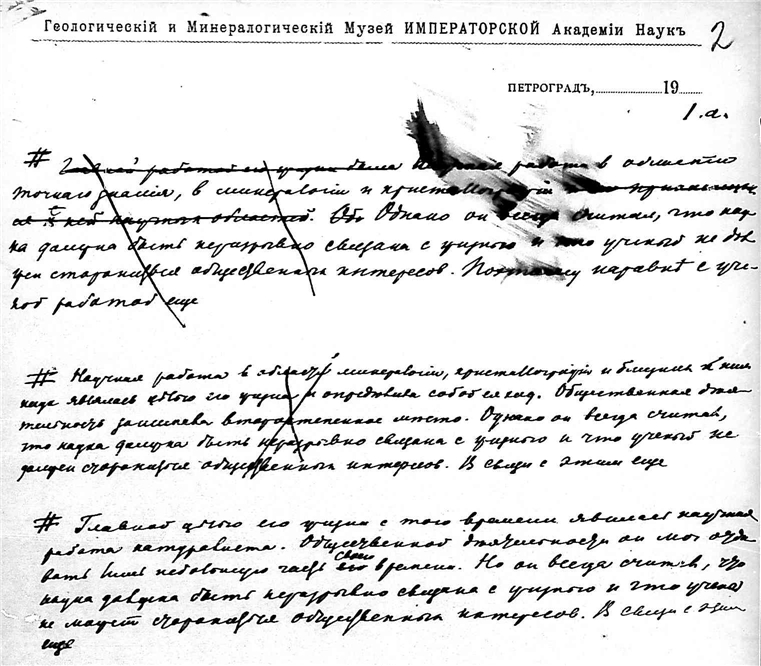 Геологическій и Минералогическій Музей ИМПЕРАТОРСКОЙ Академіи Наукъ 2
ПЕТРОГРАДЪ, 19
1.а.
# работой его жизни была работа в области
точнаго знанія, в минералогіи и кристаллографіи
научной областей. Однако он всегда считал, что нау-
ка должна быть неразрывно связана с жизнью и что ученый не дол
жен сторониться общественных интересов. Поэтому наравнѣ с уче-
ной работой еще
# Научная работа в области минералогіи, кристаллографіи и близких к ним
наук являлась цѣлью его жизни и опредѣляла собой ея ход. Общественная дѣя-
тельность занимала второстепенное мѣсто. Однако он всегда считал,
что наука должна быть неразрывно связана с жизнью и что ученый не
должен сторониться общественных интересов. В связи с этим еще
# Главной цѣлью его жизни с того времени является научная
работа натуралиста. Общественной дѣятельности он мог отда-
вать лишь небольшую часть своего времени. Но он всегда считал, что
наука должна быть неразрывно связана с жизнью и что ученый
не может сторониться общественных интересов. В связи с этим
еще